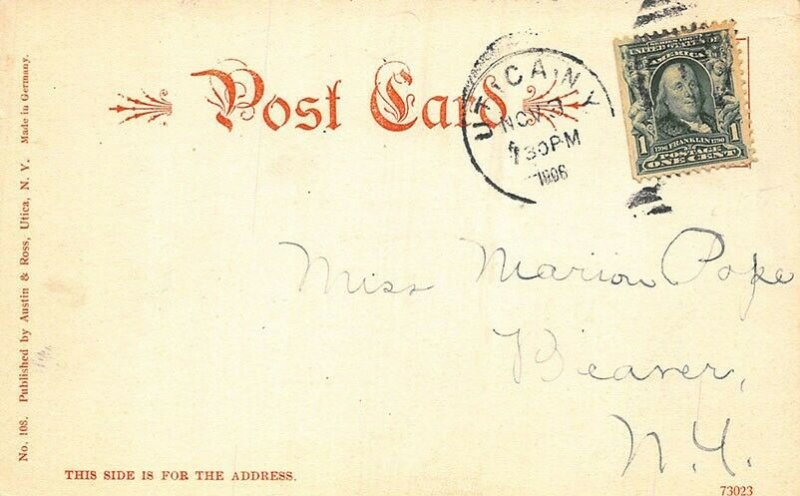 Post Card
UTICA, N.Y.
NOV
730PM
1906
UNITED STATES OF
AMERICA
1 1
1706 FRANKLIN 1790
POSTAGE
ONE CENT
Miss Marion Pope
Beaver,
N.Y.
THIS SIDE IS FOR THE ADDRESS.
73023
No. 108. Published by Austin & Ross, Utica, N. Y. Made in Germany.